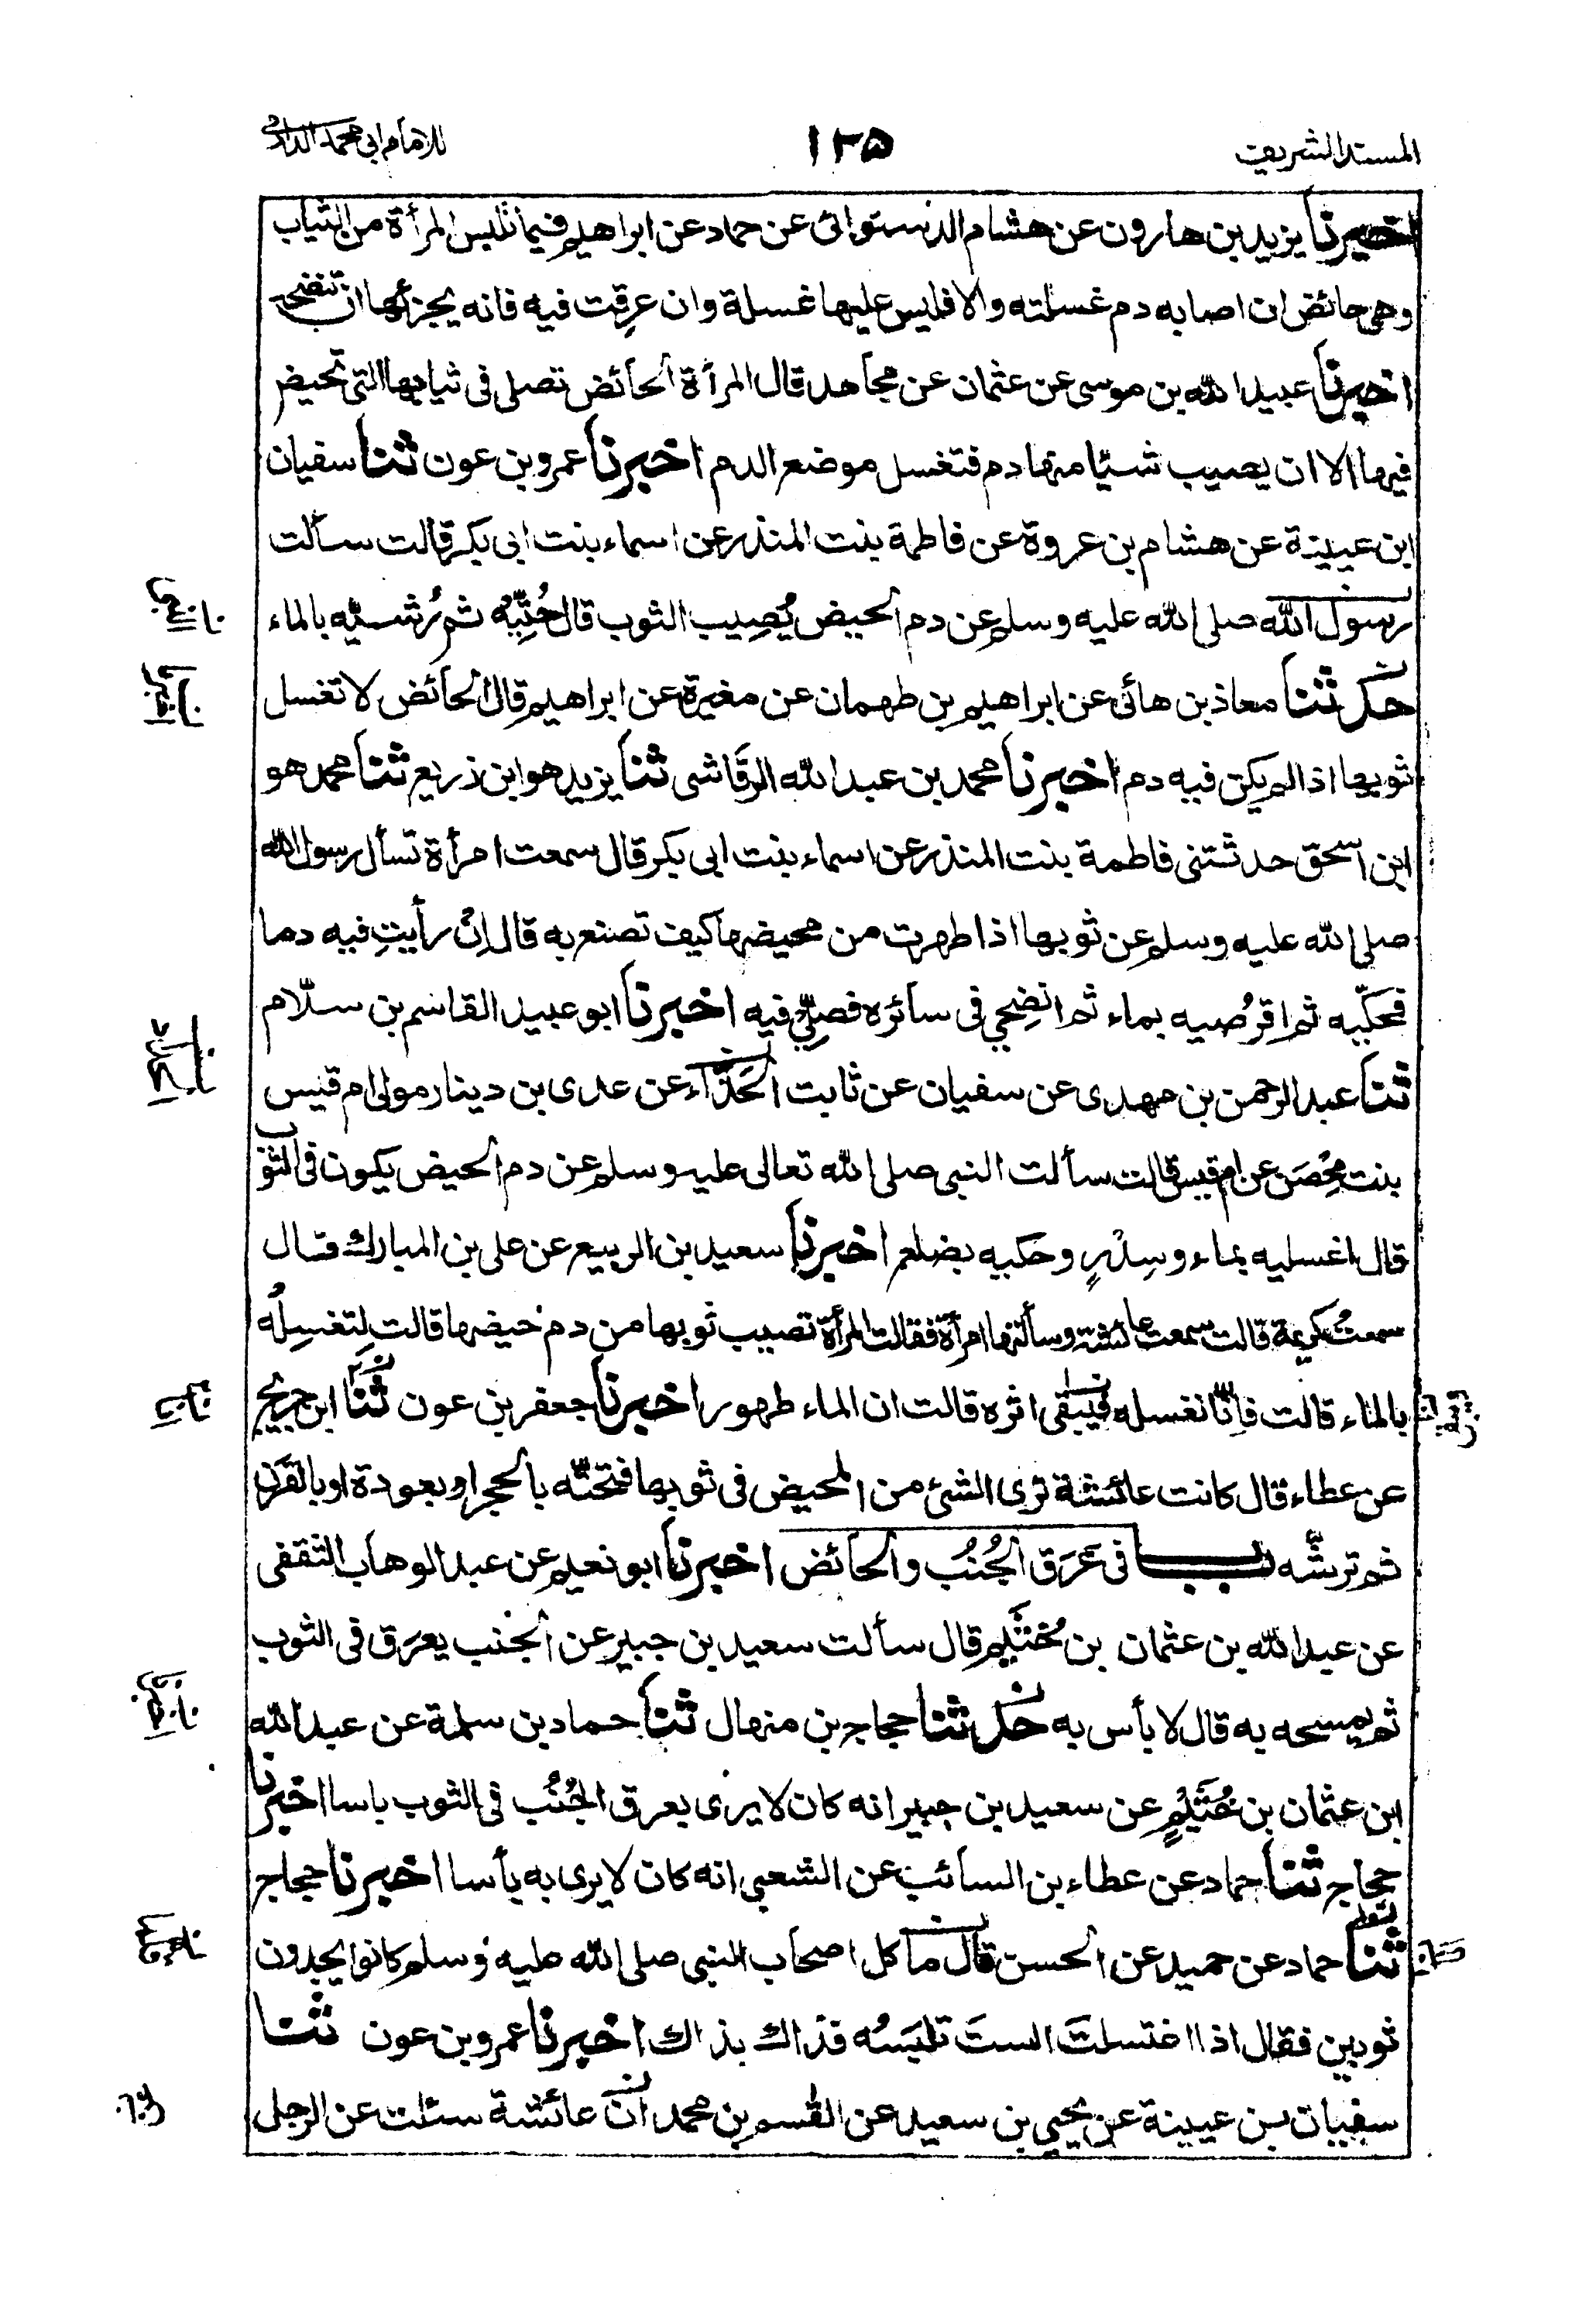 المسند الشريف
١٢٥
للامام ابی محمد الدارمی
اخبرنا يزيد بن هارون عن هشام الدستوائی عن حماد عن ابراهيم فيما تلبس المرأة من الثياب
وهی حائض ان اصابه دم غسلته والا فليس عليها غسلة وان عرِقت فيه فانه يجزئها ان تنضحه
اخبرنا عبيد الله بن موسی عن عثمان عن مجاهد قال المرأة الحائض تصلی فی ثيابها التی تحيض
فيها الا ان يصيب شيئا منها دم فتغسل موضع الدم اخبرنا عمرو بن عون ثنا سفيان
ابن عيينة عن هشام بن عروة عن فاطمة بنت المنذر عن اسماء بنت ابی بكر قالت سألت
رسول الله صلی الله عليه وسلم عن دم الحيض يُصِيب الثوب قال حُتِّيْهُ ثم رُشّيه بالماء
حدثنا معاذ بن هانئ عن ابراهيم بن طهمان عن مغيرة عن ابراهيم قال الحائض لا تغسل
ثوبها اذا لم يكن فيه دم اخبرنا محمد بن عبد الله الرقاشی ثنا يزيد هو ابن ذريع ثنا محمد هو
ابن اسحق حدثتنی فاطمة بنت المنذر عن اسماء بنت ابی بكر قال سمعت امرأة تسأل رسول الله
صلی الله عليه وسلم عن ثوبها اذا طهرت من محيضها كيف تصنع به قال اِنْ رأيتِ فيه دما
فحكّيه ثم اقرُصيه بماء ثم انضِحي فی سائره فصلّی فيه اخبرنا ابو عبيد القاسم بن سلّام
ثنا عبد الرحمن بن مهدی عن سفيان عن ثابت الحَذّاء عن عدی بن دينار مولی ام قيس
بنت محِصَن عن ام قيس قالت سألت النبی صلی الله تعالی عليه وسلم عن دم الحيض يكون فی الثوب
قال اغسليه بماء وسِدْرٍ وحكيه بضلع اخبرنا سعيد بن الربيع عن علی بن المبارك قال
سمعتُ كريمة قالت سمعت عائشة وسألتها امرأة فقالت المرأة تصيب ثوبها من دم حيضها قالت لِتغسِلُه
بالماء قالت فاِنّا نغسله فيبقی اثره قالت ان الماء طهور اخبرنا جعفر بن عون ثنا ابن جريج
عن عطاء قال كانت عائشة تری الشئ من المحيض فی ثوبها فتحتّه بالحجر او بعودة او بالقرن
ثم ترشّه باب فی عَرَق الجُنُبُ والحائض اخبرنا ابو نعيم عن عبد الوهاب الثقفی
عن عبد الله بن عثمان بن خُثَيْم قال سألت سعيد بن جبير عن الجنب يعرَق فی الثوب
ثم يمسحه به قال لا بأس به حدثنا حجاج بن منهال ثنا حماد بن سلمة عن عبد الله
ابن عثمان بن خُثَيْمٍ عن سعيد بن جبير انه كان لا يری بعرق الجُنُب فی الثوب باسا اخبرنا
حجاج ثنا حماد عن عطاء بن السائب عن الشعبی انه كان لا يری به بأسا اخبرنا حجاج
ثنا حماد عن حميد عن الحسن قال ما كل اصحاب النبی صلی الله عليه وسلم كانوا يجدون
ثوبين فقال اذا اغتسلتَ الستَ تلبَسُه فذاك بذاك اخبرنا عمرو بن عون ثنا
سفيان بن عيينة عن يحيی بن سعيد عن القسم بن محمد ان عائشة سئلت عن الرجل